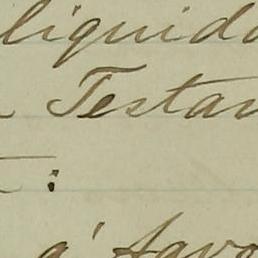 liquida
Testa
:
a' favo